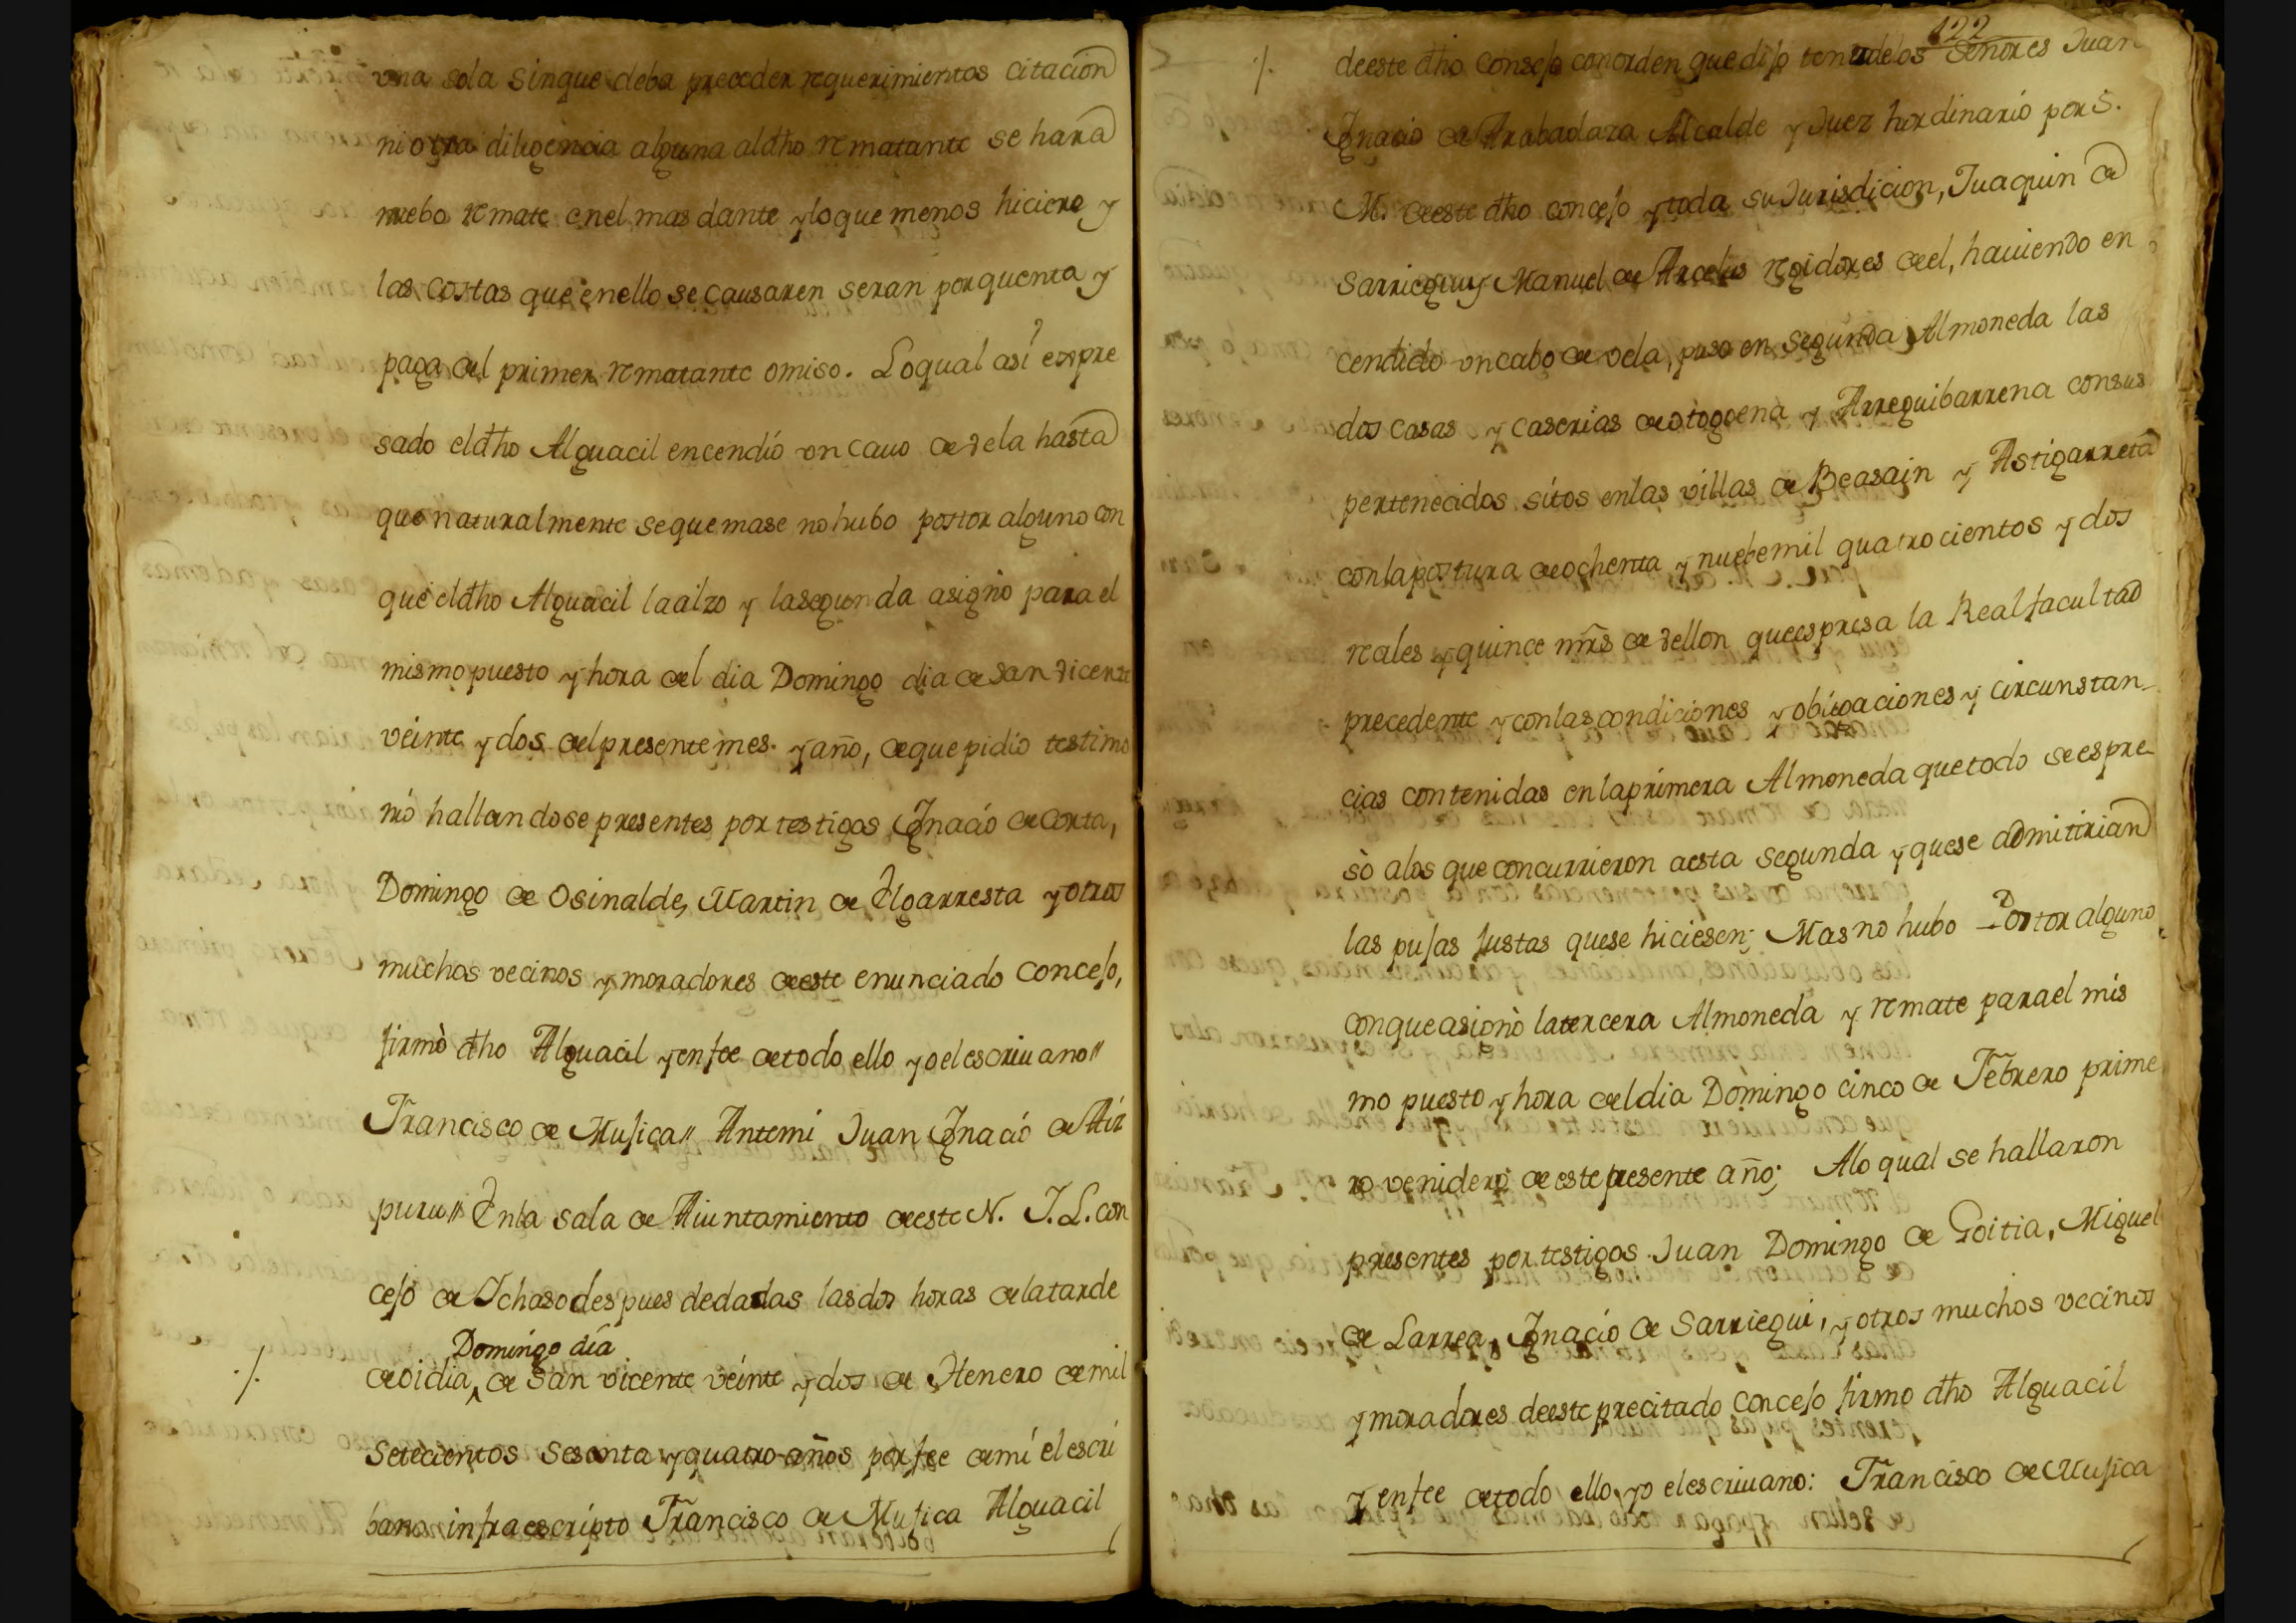 una sola sinque deba preceder requerimientos citacion
ni otra diligencia alguna al dho rematante se hara
nuebo remate en el mas dante y lo que menos hiciere y
las costas que en ello se causaren seran por quenta y
paga del primer rematante omiso. Lo qual asi expre
sado el dho Alguacil encendio un cauo de vela hasta
que naturalmente se quemase no hubo postor alguno con
que el dho Alguacil la alzo y la segunda asigno para el
mismo puesto y hora del dia Domingo dia de San Vicente
veinte y dos del presente mes y año, de que pidio testimo
nio hallandose presentes por testigos Ignacio de Corta,
Domingo de Osinalde, Martin de Elgarresta y otros
muchos vecinos y moradores de este enunciado concejo,
firmò dho Alguacil y en fee de todo ello yo el escriuano //
Francisco de Mujica // Antemi Juan Ignacio de Aiz
puru // En la sala de Aiuntamiento de este N. I. L. con
cejo de Ichaso despues de dadas las dos horas de la tarde
Domingo dia
de oi dia de San Vicente veinte y dos de Henero de mil
setecientos sesenta y quatro años por fee de mi el escri
bano infraescripto Francisco de Mujica Alguacil
122
de este dho Consejo con orden que dijo tenia de los Señores Juan
Ignacio de Arabaolaza Alcalde y Juez hordinario por S.
M. de este dho concejo y toda su Jurisdicion, Juaquin de
Sarriegui y Manuel de Arcelus rejidores de el, hauiendo en
cendido un cabo de vela, puso en segunda Almoneda las
dos casas y caserias de otogoena y Arreguibarrena con sus
pertenecidos sitos en las villas de Beasain y Astigarreta
con la postura de ochenta y nuebe mil quatrocientos y dos
reales y quince mrs de vellon que espresa la Real facultad
precedente y con las condiciones y obligaciones y circunstan-
cias contenidas en la primera Almoneda que todo se espre-
sò a los que concurrieron a esta segunda y que se admitirian
las pujas Justas que se hiciesen; Mas no hubo Postor alguno
con que asignò la tercera Almoneda y remate para el mis
mo puesto y hora del dia Domingo cinco de Febrero prime
ro venidero de este presente año; A lo qual se hallaron
presentes por testigos Juan Domingo de Goitia, Miguel
de Larrea, Ignacio de Sarriegui, y otros muchos vecinos
y moradores de este precitado concejo firmo dho Alguacil
y en fee de todo ello yo el escriuano: Francisco de Mujica